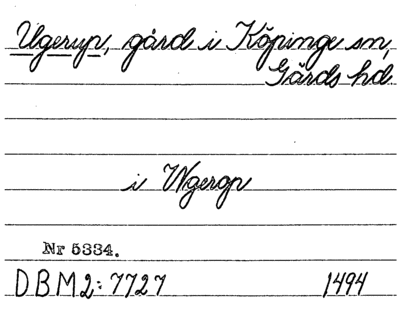 Ugerup, gård i Köpinge sn,
Gärds hd
i Wgerop
Nr 5334.
DBM2: 7727 1494